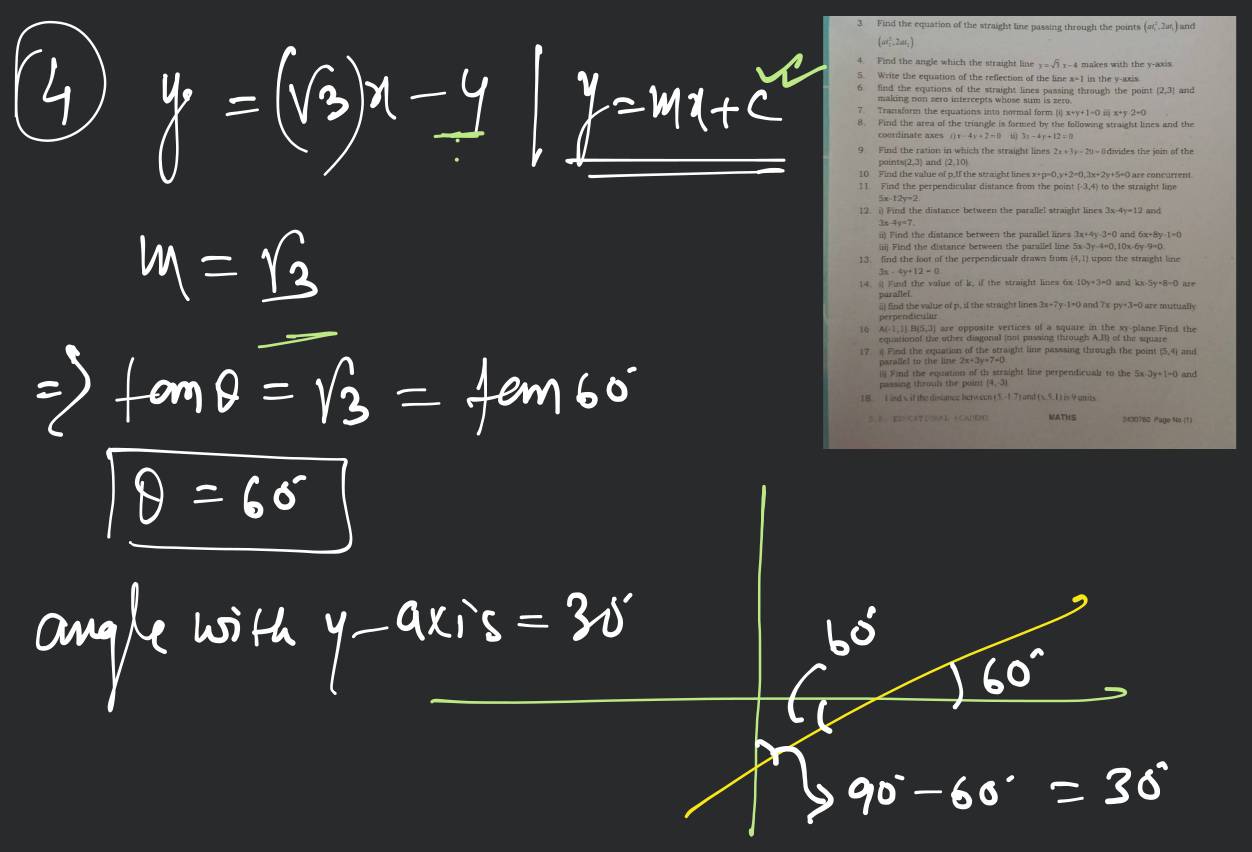 4
y = (√3)x - 4 | y = mx + c
m = √3
⇒ tan θ = √3 = tan 60°
θ = 60°
angle with y-axis = 30°
60°
60°
90° - 60° = 30°
3. Find the equation of the straight line passing through the points (at₁², 2at₁) and
(at₂², 2at₂)
4. Find the angle which the straight line y=√3 x-4 makes with the y-axis.
5. Write the equation of the reflection of the line x=1 in the y-axis.
6. find the equtions of the straight lines passing through the point (2,3) and
making non zero intercepts whose sum is zero.
7. Transform the equations into normal form (i) x+y+1=0 ii) x+y-2=0
8. Find the area of the triangle is formed by the following straight lines and the
coordinate axes i) x-4y+2=0 ii) 3x-4y+12=0
9. Find the ration in which the straight lines 2x+3y-20=0 divides the join of the
points(2,3) and (2,10).
10. Find the value of p,If the straight lines x+p=0,y+2=0,3x+2y+5=0 are concurrent.
11. Find the perpendicular distance from the point (-3,4) to the straight line
5x-12y=2.
12. i) Find the distance between the parallel straight lines 3x-4y=12 and
3x-4y=7.
ii) Find the distance between the parallel lines 3x+4y-3=0 and 6x+8y-1=0
iii) Find the distance between the parallel line 5x-3y-4=0,10x-6y-9=0.
13. find the foot of the perpendicualr drawn from (4,1) upon the straight line
3x - 4y+12 = 0.
14. i) Find the value of k, if the straight lines 6x-10y+3=0 and kx-5y+8=0 are
parallel.
ii) find the value of p, if the straight lines 3x+7y-1=0 and 7x-py+3=0 are mutually
perpendicular.
16 A(-1,1) B(5,3) are opposite vertices of a square in the xy-plane.Find the
equationof the other diagonal (not passing through A,B) of the square
17. i) Find the equation of the straight line passsing through the point (5,4) and
parallel to the line 2x+3y+7=0.
ii) Find the equation of th straight line perpendicualr to the 5x-3y+1=0 and
passing throuh the point (4,-3)
18. Find x if the distance between (5,-1,7) and (x,5,1) is 9 units.
EDUCATIONAL ACADEMY MATHS 2430762 Page No (1)